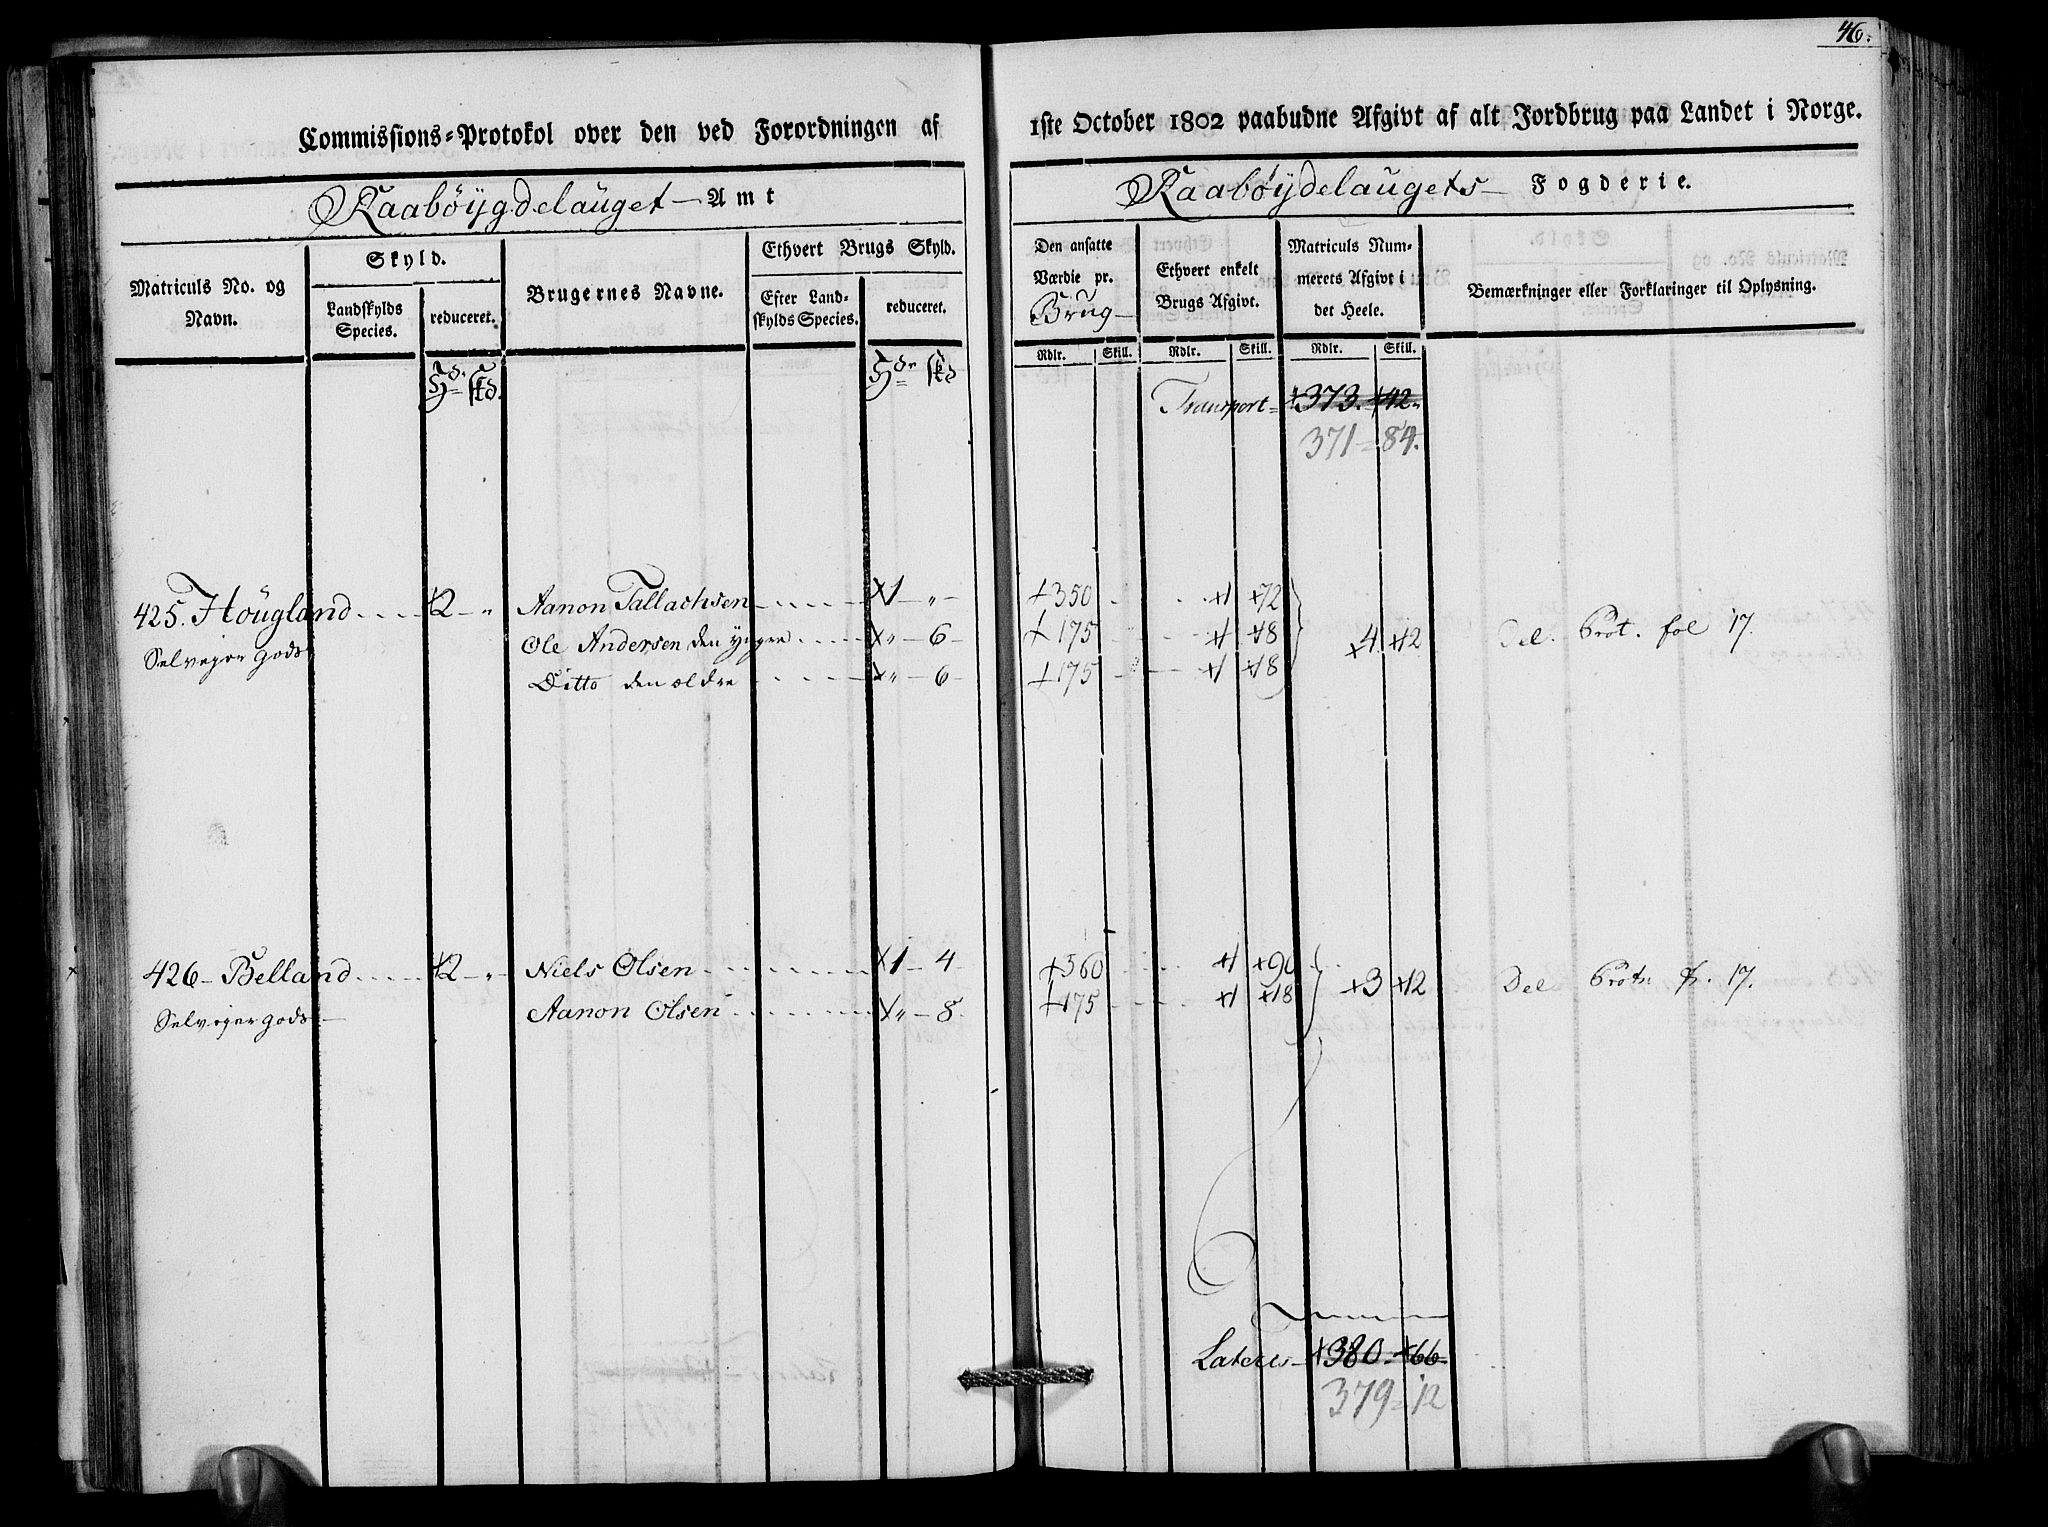 46.
Commissions-Protokol over den ved Forordningen af 1ste October 1802 paabudne Afgivt af alt Jordbrug paa Landet i Norge.
Raabøÿgdelauget Amt
Raabøÿdelaugets Fogderie.
Matriculs No. og Navn.
Skyld.
Landskylds Species.
reduceret.
Brugernes Navne.
Ethvert Brugs Skyld.
Efter Landskylds Species.
reduceret.
Den ansatte Værdie pr. Brug
Ethvert enkelt Brugs Afgivt.
Matriculs Nummerets Afgivt i det Heele.
Bemærkninger eller Forklaringer til Oplysning.
Rdlr. Skill. Rdlr. Skill. Rdlr. Skill.
Transport 373. 42
371 = 84.
425. Høugland 2 „ Aanon Tallachsen 1 „ 350 1 72
Selvejer gods Ole Andersen den yngre „ 6 175 1 18 4 12 Del. Prot. fol 17.
Ditto den ældre „ 6 175 1 18
426 Belland 2 „ Niels Olsen 1 4 560 1 90 3 12 Del Protn f. 17.
Selvejer gods Aanon Olsen „ 8 175 1 18
Lateris 380 66
379 = 12